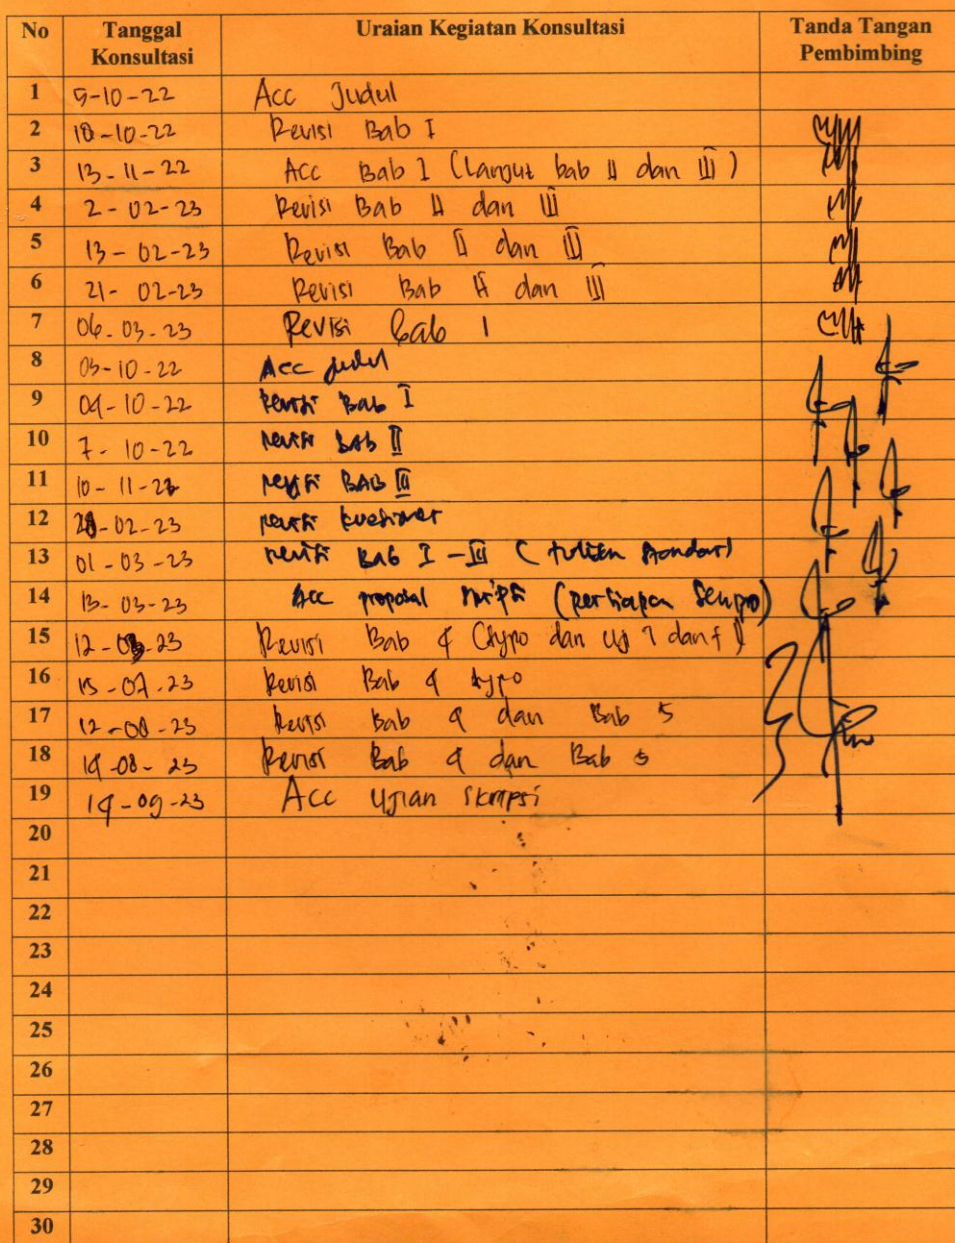 No Tanggal Konsultasi Uraian Kegiatan Konsultasi Tanda Tangan Pembimbing
1 5-10-22 Acc Judul
2 10-10-22 Revisi Bab I
3 13-11-22 Acc Bab I (Lanjut bab II dan III)
4 2-02-23 Revisi Bab II dan III
5 13-02-23 Revisi Bab II dan III
6 21-02-23 Revisi Bab II dan III
7 06-03-23 Revisi Bab 1
8 05-10-22 Acc judul
9 09-10-22 revisi Bab I
10 7-10-22 revisi Bab II
11 10-11-22 revisi BAB III
12 28-02-23 revisi kuesioner
13 01-03-23 revisi Bab I - III (tulisan standar)
14 13-03-23 Acc proposal skripsi (persiapan Sempro)
15 Revisi Bab 4 (typo dan uji T dan f)
16 15-07-23 Revisi Bab 4 typo
17 12-08-23 Revisi Bab 4 dan Bab 5
18 14-08-23 Revisi Bab 4 dan Bab 5
19 14-09-23 Acc Ujian Skripsi
20
21
22
23
24
25
26
27
28
29
30